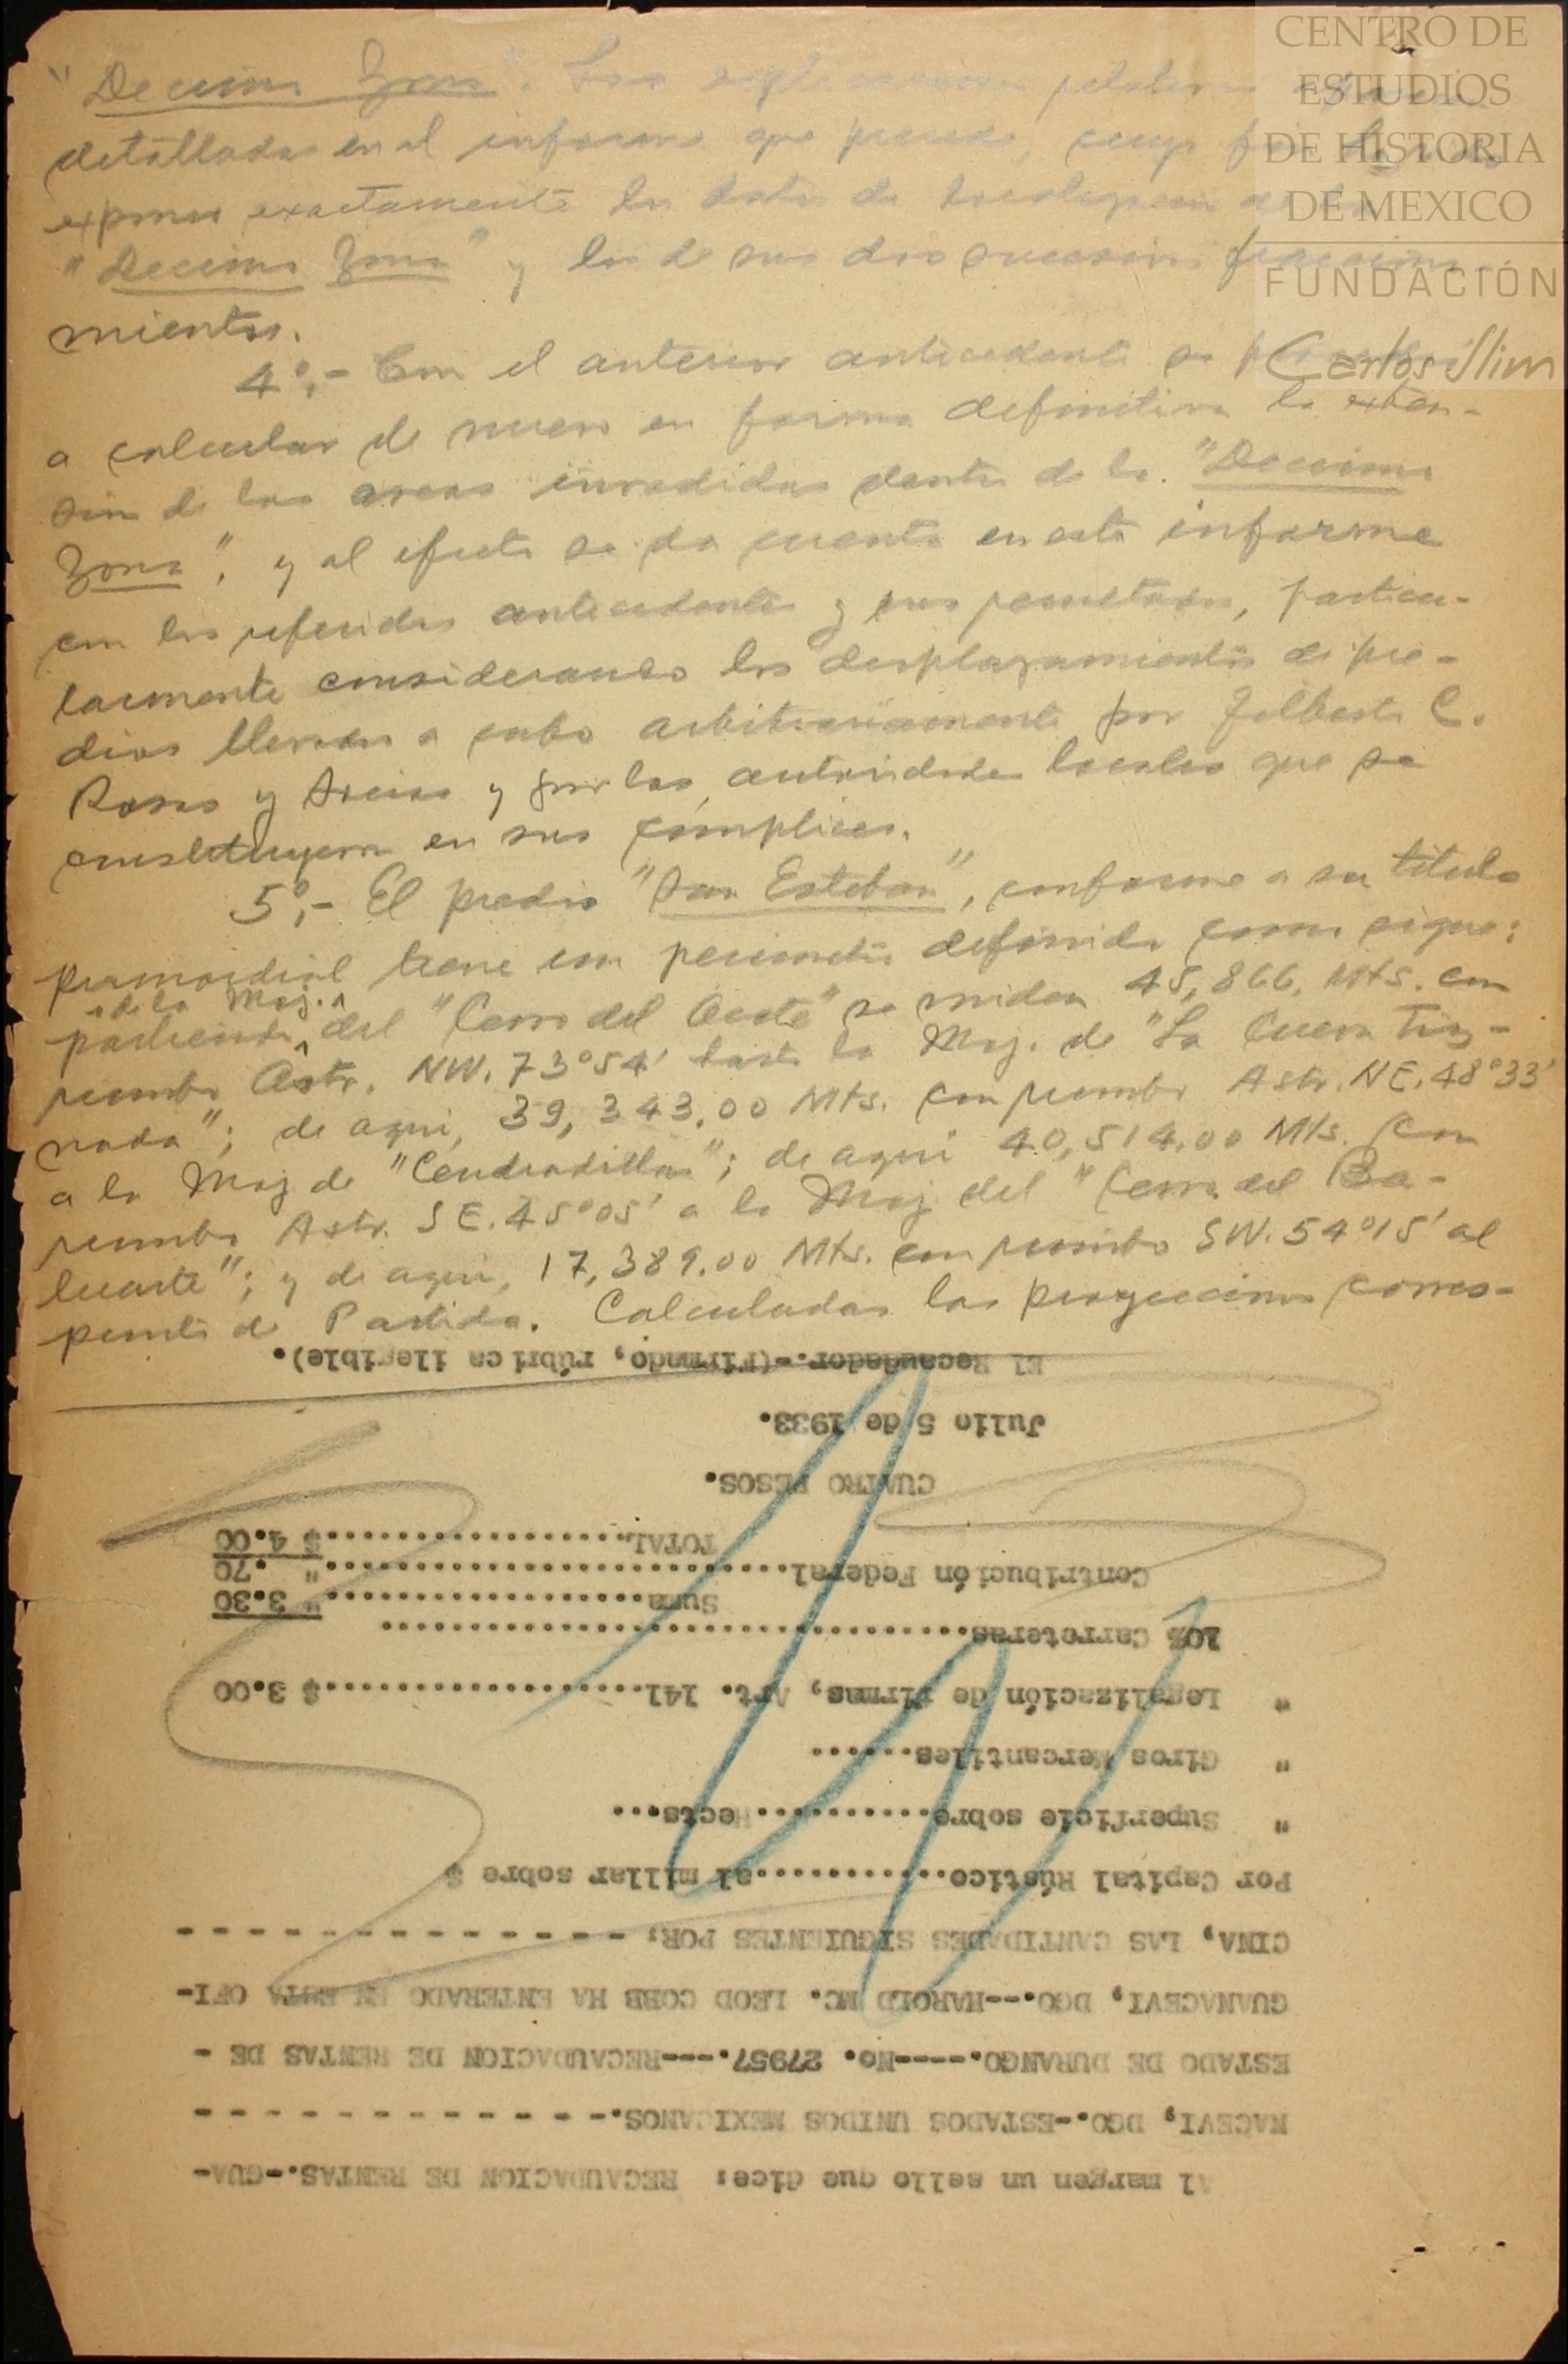 CENTRO DE
ESTUDIOS
DE HISTORIA
DE MEXICO
FUNDACIÓN
Carlos Slim
"Decima Zona". Las
detallada en el informe que precede, cuyo
expresa exactamente los datos de
"Decima Zona" y los de sus dos sucesivos fracciona-
mientos.
4º,- Con el anterior antecedente se
a calcular de nuevo en forma definitiva la exten-
sión de las areas invadidas dentro de la "Decima
Zona", y al efecto se da cuenta en este informe
con los referidos antecedentes y sus resultados, particu-
larmente considerando los desplazamientos de pre-
dios llevados a cabo arbitrariamente por Filberto C.
Rosas y Arcias y por las autoridades locales que se
constituyeron en sus cómplices.
5º,- El predio "San Esteban", conforme a su título
primordial tiene un perimetro definido como sigue:
partiendo de la Moj. del "Cerro del Oeste" se miden 45,866. Mts. con
rumbo Astr. NW. 73°54' hasta la Moj. de "La Cueva Tiz-
nada"; de aqui, 39,343.00 Mts. con rumbo Astr. NE. 48°33'
a la Moj de "Cendradillas"; de aqui 40,514.00 Mts. con
rumbo Astr. SE. 45°05' a la Moj del "Cerro del Ba-
luarte"; y de aqui, 17,389.00 Mts. con rumbo SW. 54°15' al
punto de Partida. Calculadas las proyecciones corres-
Al margen un sello que dice: RECAUDACION DE RENTAS.-GUA-
NACEVI, DGO.-ESTADOS UNIDOS MEXICANOS.- - - - - - - - - - - -
ESTADO DE DURANGO.----No. 27957.---RECAUDACION DE RENTAS DE -
GUANACEVI, DGO.---HAROLD MC. LEOD COBB HA ENTERADO EN ESTA OFI-
CINA, LAS CANTIDADES SIGUIENTES POR: - - - - - - - - - - - - -
Por Capital Rústico............al millar sobre $
" Superficie sobre...........Hects....
" Giros Mercantiles......
" Legalización de firmas, Art. 141....................$ 3.00
10% Carreteras.................................
Suma...................." 3.30
Contribución Federal............................" .70
TOTAL...................$ 4.00
CUATRO PESOS.
Julio 5 de 1933.
El Recaudador.-(Firmado, rúbrica ilegible).